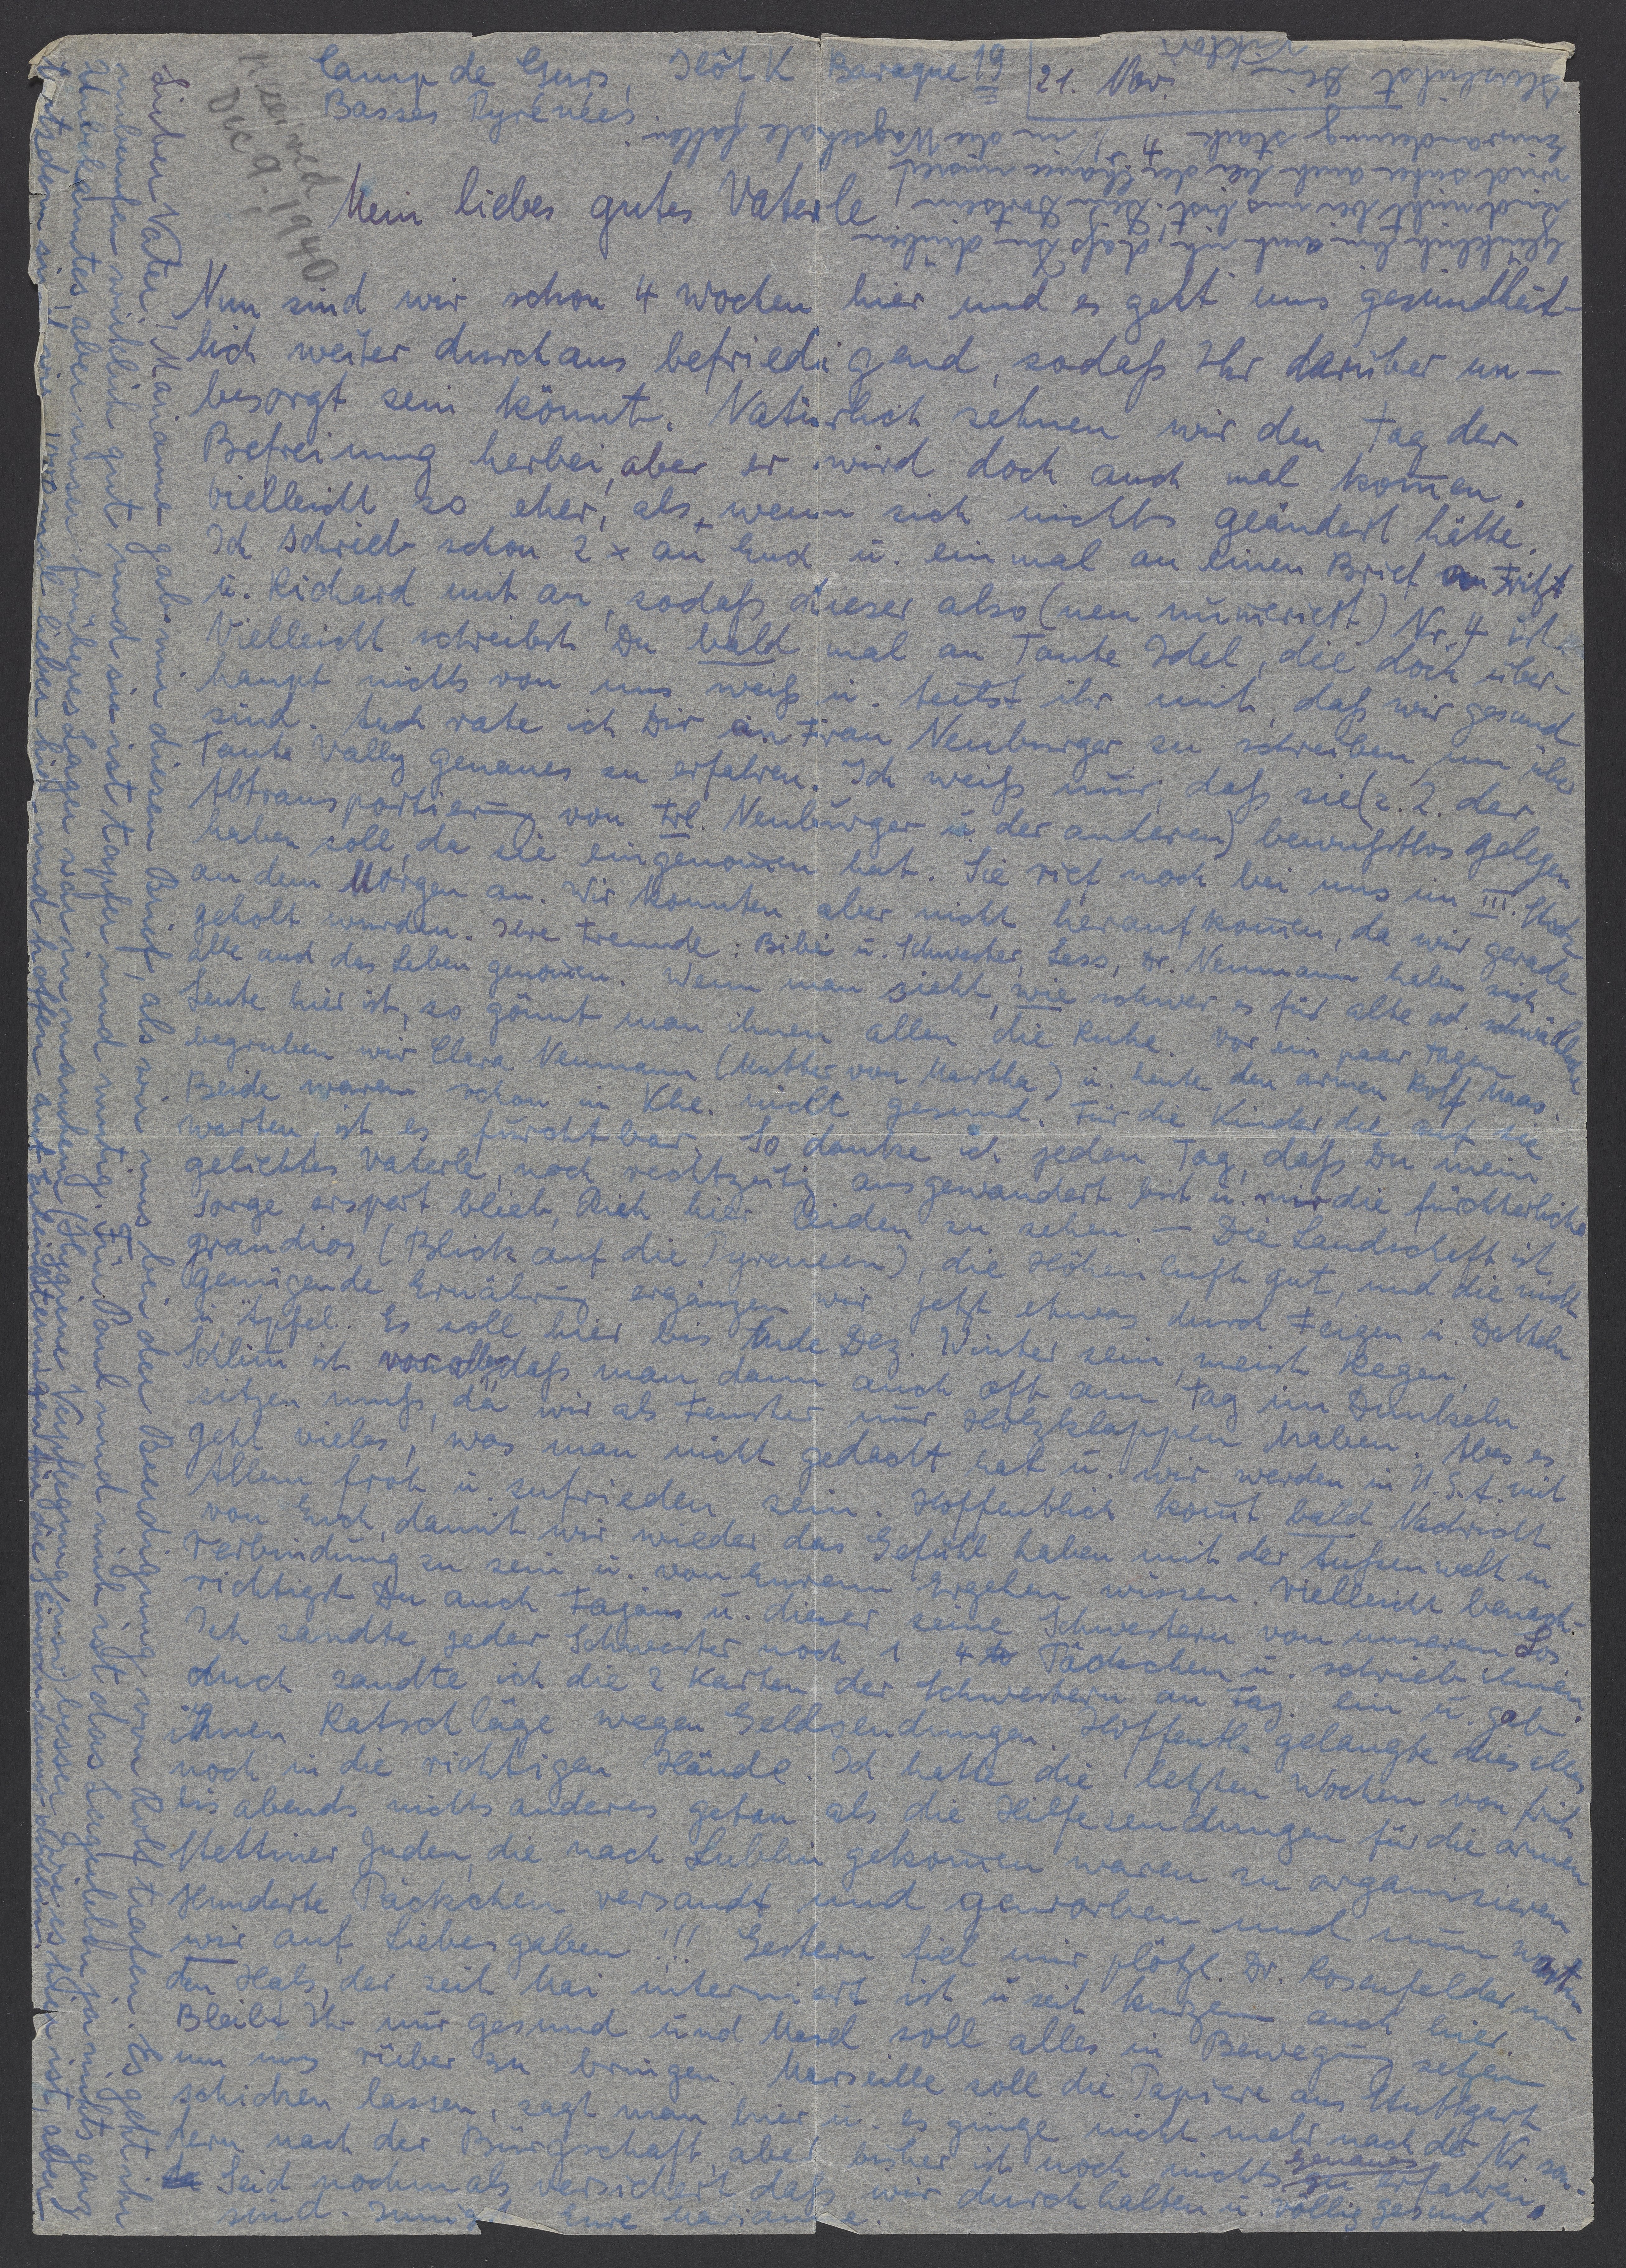 Camp de Gurs, Ilôt K Baraque 19
21. Nov.
Basses Pyrénées.
received
Dec 9. 1940
Mein liebes gutes Vaterle!
Nun sind wir schon 4 Wochen hier und es geht uns gesundheit-
lich weiter durchaus befriedigend, sodaß Ihr darüber un-
besorgt sein könnt. Natürlich sehnen wir den Tag der
Befreiung herbei, aber er wird doch auch mal kom̄en.
Vielleicht so eher, als, wenn sich nichts geändert hätte.
Ich schrieb schon 2 x an Euch u. einmal an einen Brief an Fritz
u. Richard mit an, sodaß dieser also (neu num̄eriert) Nr. 4 ist.
Vielleicht schreibst Du bald mal an Tante Idel, die doch über-
haupt nichts von uns weiß u. teilst ihr mit, daß wir gesund
sind. Auch rate ich Dir an Frau Neuburger zu schreiben, um über
Tante Vally genaues zu erfahren. Ich weiß nur, daß sie (z. Z. der
Abtransportierung von Frl. Neuburger u. der anderen) bewußtlos gelegen
haben soll, da sie eingenom̄en hat. Sie rief noch bei uns im III. Stock
an dem Morgen an. Wir konnten aber nicht heraufkom̄en, da wir gerade
geholt wurden. Ihre Freunde: Bibi u. Schwester, Less, Dr. Neumann haben sich
alle auch das Leben genom̄en. Wenn man sieht, wie schwer es für alte od. schwächliche
Leute hier ist, so gönnt man ihnen allen die Ruhe. Vor ein paar Tagen
begruben wir Clara Neumann (Mutter von Martha) u. heute den armen Rolf Maas.
Beide waren schon in Khe. nicht gesund. Für die Kinder, die auf die
warten, ist es furchtbar. So danke ich jeden Tag, daß Du mein
geliebtes Vaterle, noch rechtzeitig ausgewandert bist u. mir die fürchterliche
Sorge erspart blieb, Dich hier leiden zu sehen. — Die Landschaft ist
grandios (Blick auf die Pyreneen), die Höhenluft gut, und die nicht
genügende Ernährung ergänzen wir jetzt etwas durch Feigen u. Datteln
u. Äpfel. Es soll hier bis Ende Dez. Winter sein, meist Regen.
Schlim̄ ist vor allem, daß man dann auch oft am Tag im Dunkeln
sitzen muß, da wir als Fenster nur Holzklappen haben. Aber es
geht vieles, was man nicht gedacht hat u. wir werden in U.S.A. mit
Allem froh u. zufrieden sein. Hoffentlich kom̄t bald Nachricht
von Euch, damit wir wieder das Gefühl haben mit der Außenwelt in
Verbindung zu sein u. von Eurem Ergehen wissen. Vielleicht benach-
richtigst Du auch Fajans u. dieser seine Schwestern von unserem Los.
Ich sandte jeder Schwester noch 1 4 Päckchen u. schrieb ihnen.
Auch sandte ich die 2 Karten der Schwestern an Faj. ein u. gab
ihnen Ratschläge wegen Geldsendungen. Hoffentl. gelangte dies alles
noch in die richtigen Hände. Ich hatte die letzten Wochen von früh
bis abends nichts anderes getan als die Hilfesendungen für die armen
Stettiner Juden, die nach Lublin gekom̄en waren zu organisieren
Hunderte Päckchen versandt und geworben und nun warten
wir auf Liebesgaben!!! Gestern fiel mir plötzl. Dr. Rosenfelder um
den Hals, der seit Mai interniert ist u. seit kurzem auch hier.
Bleibt Ihr nur gesund und Maxl soll alles in Bewegung setzen
um uns rüber zu bringen. Marseille soll die Papiere aus Stuttgart
schicken lassen, sagt man hier u. es ginge nicht mehr nach der Nr. son-
dern nach der Bürgschaft, aber bisher ist noch nichts Genaues zu erfahren.
Seid nochmals versichert, daß wir durchhalten u. völlig gesund
sind. Innigst Eure Marianne.
Lieber Vater! Marianne gab mir diesen Brief, als wir uns bei der Beerdigung von Rolf trafen. Es geht ihr
wirklich gut, und sie ist tapfer und mutig. Für Paul und mich ist das Lagerleben ja nichts ganz
Unbekanntes, aber unser früheres Lager war in manchem (Hygiene, Verpflegung) besser
Trotzdem sind wir lieber hier und hoffen auf Erleichterungen für die Einwanderung
glücklich bin auch ich, daß Du drüben
und nicht bei uns bist. Dein Dortsein
wird sicher auch bei der Chance unserer
Einwanderung stark in die Wagschale fallen.
Herzlichst Dein
Viktor